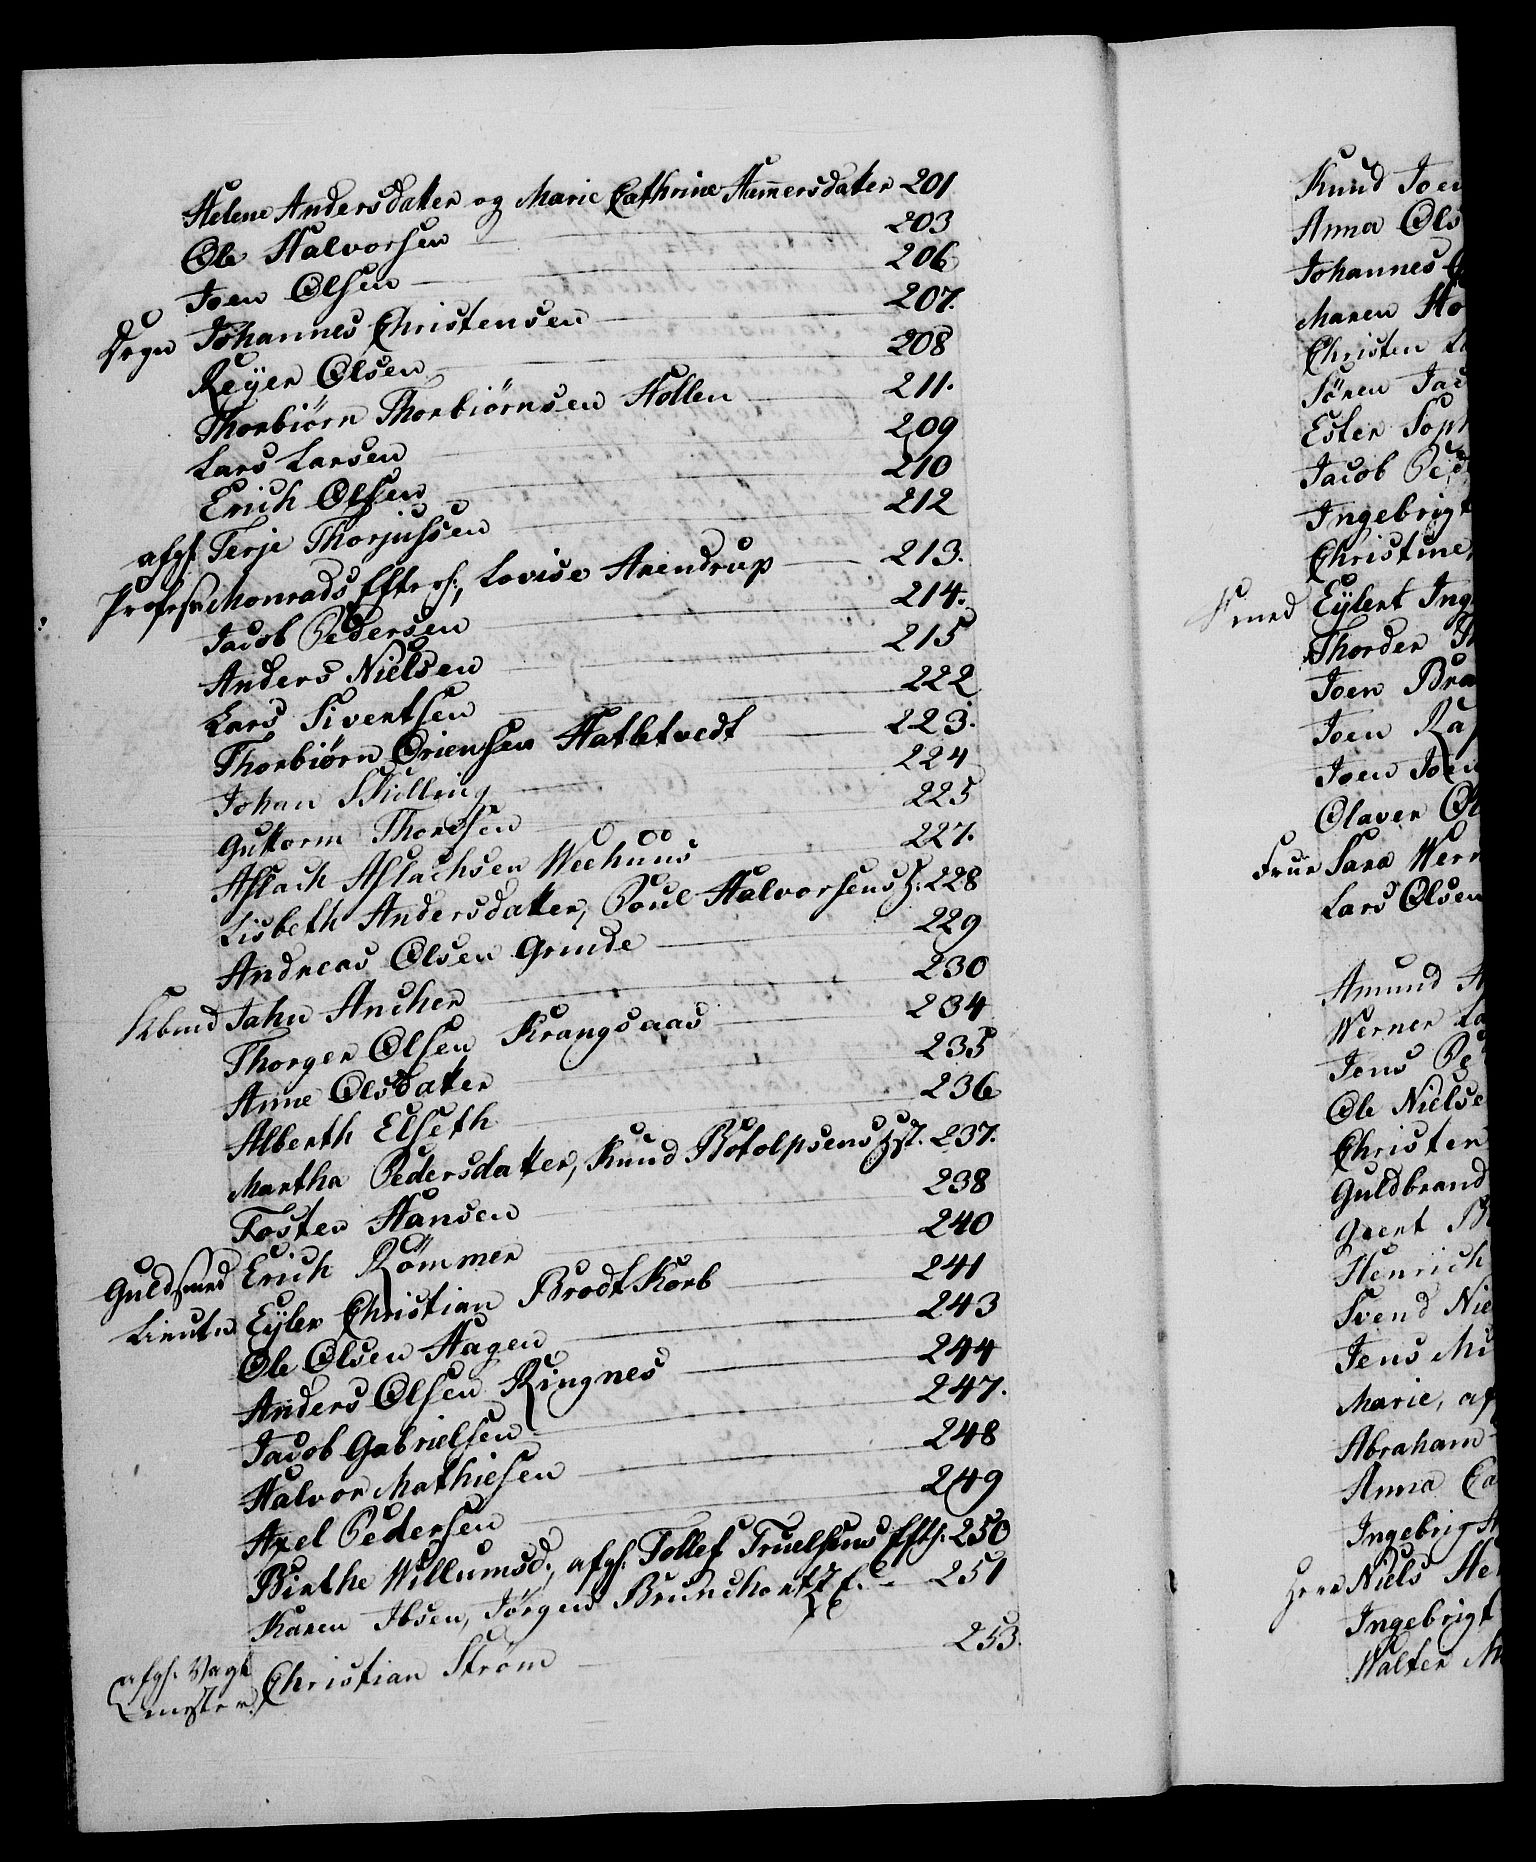 Helene Andersdatter og Marie Cathrine Hemersdatter 201
Ole Halvorsen 203
Joen Olsen 206
Degn Johannes Christensen 207.
Reyer Olsen 208
Thorbiørn Thorbiørnsen Hollen 211.
Lars Larsen 209
Erich Olsen 210
afgl. Terje Thorjussen 212
Profess. Monrads Efterl:, Lovise Arendrup 213.
Jacob Pedersen 214.
Anders Nielsen 215
Lars Sivertsen 222
Thorbiørn Oriensen Hatletvedt 223.
Johan Skilling 224
Guttorm Thoresen 225
Aslach Aslachsen Weehuus 227.
Lisbeth Andersdatter, Poul Halvorsens H. 228
Andreas Olsen Grinde 229
Kbmd Jahn Ancher 230
Thorger Olsen Krangsaas 234
Anne Olsdatter 235
Alberth Elseth 236
Martha Pedersdatter, Knud Botolpsens Hst. 237.
Tosten Hansen 238
Guldsmed Erich Römmer 240
Lieutn Eyler Christian BrodtKorb 241
Ole Olsen Hagen 243
Anders Olsen Ringnes 244
Jacob Gabrielsen 247.
Halvor Mathiesen 248
Axel Pedersen 249
Birthe Willumsd., afgl. Tollef Truelsens Eftl. 250
Karen Ibsen, Jørgen Brunchorst E. 251
afgl. Vagt
mester Christian Strøm 253.
Knud Joen
Anna Ols
Johannes
Maren Ho
Christen
Sören Jac
Ester Soph
Jacob Ped
Ingebrigt
Christine
Smed Eylert Ing
Thorder
Joen Bra
Joen Ra
Joen Joen
Olaver Ol
Frue Sara Wern
Lars Olsen
Amund A
Werner La
Jens Pe
Ole Nielse
Christen
Guldbrand
Geert
Henrich
Svend Nie
Jens Mi
Marie, af
Abraham
Anna Ca
Ingebrigt
Herr Niels He
Ingebrigt
Walter M